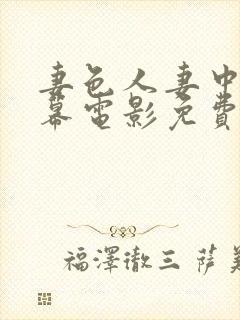 妻色人妻中
幕電影免費
福澤徹三 薩美